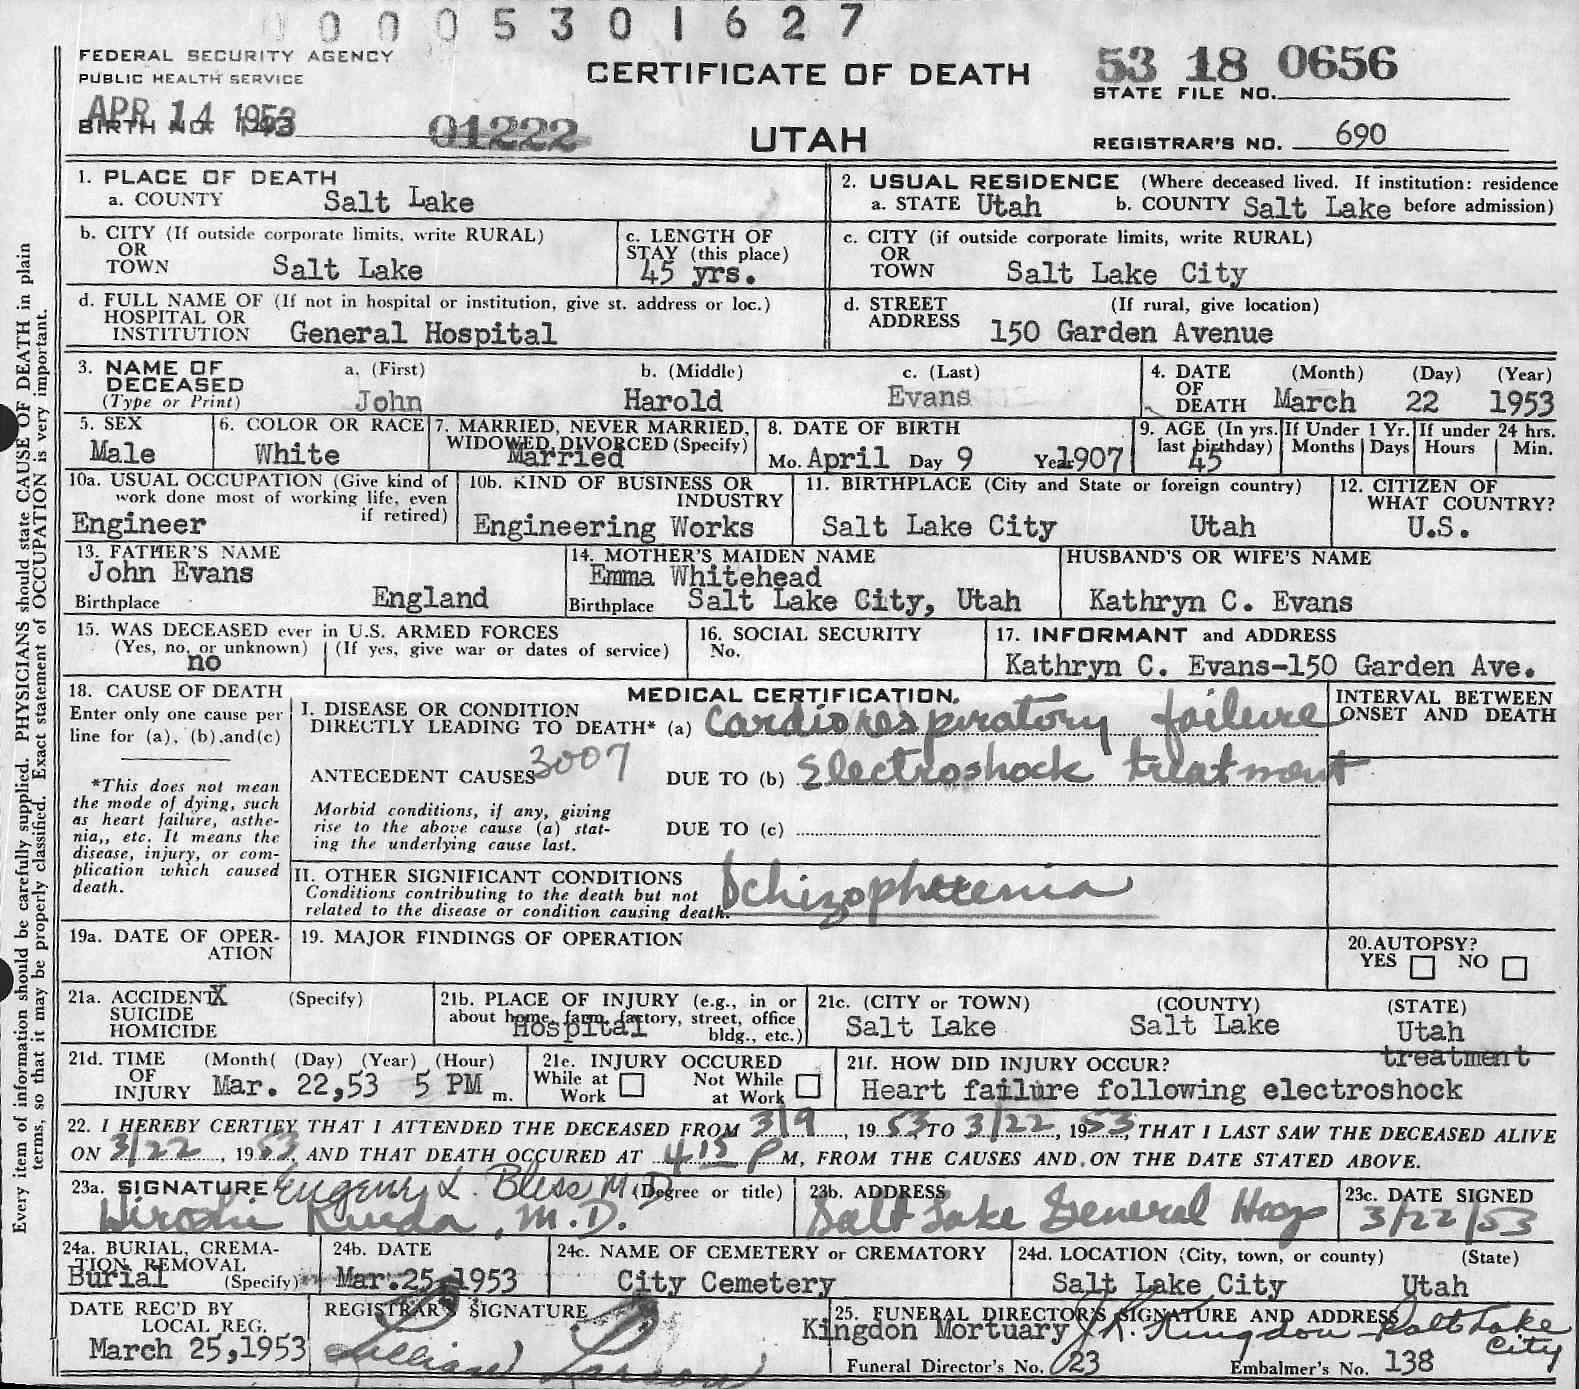 0 0 0 0 5 3 0 1 6 2 7
FEDERAL SECURITY AGENCY
PUBLIC HEALTH SERVICE
CERTIFICATE OF DEATH
53 18 0656
STATE FILE NO.
APR 14 1953
BIRTH NO.
01222
UTAH
REGISTRAR'S NO. 690
1. PLACE OF DEATH
a. COUNTY Salt Lake
2. USUAL RESIDENCE (Where deceased lived. If institution: residence
a. STATE Utah b. COUNTY Salt Lake before admission)
b. CITY (If outside corporate limits, write RURAL)
OR
TOWN Salt Lake
c. LENGTH OF
STAY (this place)
45 yrs.
c. CITY (if outside corporate limits, write RURAL)
OR
TOWN Salt Lake City
d. FULL NAME OF (If not in hospital or institution, give st. address or loc.)
HOSPITAL OR
INSTITUTION General Hospital
d. STREET (If rural, give location)
ADDRESS 150 Garden Avenue
3. NAME OF a. (First) b. (Middle) c. (Last)
DECEASED
(Type or Print) John Harold Evans
4. DATE (Month) (Day) (Year)
OF
DEATH March 22 1953
5. SEX
Male
6. COLOR OR RACE
White
7. MARRIED, NEVER MARRIED,
WIDOWED, DIVORCED (Specify)
Married
8. DATE OF BIRTH
Mo. April Day 9 Year 1907
9. AGE (In yrs.
last birthday)
45
If Under 1 Yr.
Months Days
If under 24 hrs.
Hours Min.
10a. USUAL OCCUPATION (Give kind of
work done most of working life, even
if retired)
Engineer
10b. KIND OF BUSINESS OR
INDUSTRY
Engineering Works
11. BIRTHPLACE (City and State or foreign country)
Salt Lake City Utah
12. CITIZEN OF
WHAT COUNTRY?
U.S.
13. FATHER'S NAME
John Evans
Birthplace England
14. MOTHER'S MAIDEN NAME
Emma Whitehead
Birthplace Salt Lake City, Utah
HUSBAND'S OR WIFE'S NAME
Kathryn C. Evans
15. WAS DECEASED ever in U.S. ARMED FORCES
(Yes, no, or unknown) (If yes, give war or dates of service)
no
16. SOCIAL SECURITY
No.
17. INFORMANT and ADDRESS
Kathryn C. Evans-150 Garden Ave.
18. CAUSE OF DEATH
Enter only one cause per
line for (a), (b), and (c)
*This does not mean
the mode of dying, such
as heart failure, asthe-
nia,, etc. It means the
disease, injury, or com-
plication which caused
death.
MEDICAL CERTIFICATION.
I. DISEASE OR CONDITION
DIRECTLY LEADING TO DEATH* (a) Cardiorespiratory failure
ANTECEDENT CAUSES 3007 DUE TO (b) Electroshock treatment
Morbid conditions, if any, giving
rise to the above cause (a) stat-
ing the underlying cause last.
DUE TO (c)
II. OTHER SIGNIFICANT CONDITIONS
Conditions contributing to the death but not
related to the disease or condition causing death.
Schizophrenia
INTERVAL BETWEEN
ONSET AND DEATH
19a. DATE OF OPER-
ATION
19. MAJOR FINDINGS OF OPERATION
20. AUTOPSY?
YES NO
21a. ACCIDENT X (Specify)
SUICIDE
HOMICIDE
21b. PLACE OF INJURY (e.g., in or
about home, farm, factory, street, office
bldg., etc.)
Hospital
21c. (CITY or TOWN) (COUNTY) (STATE)
Salt Lake Salt Lake Utah
21d. TIME (Month( (Day) (Year) (Hour)
OF
INJURY Mar. 22,53 5 PM m.
21e. INJURY OCCURED
While at Work Not While at Work
21f. HOW DID INJURY OCCUR? treatment
Heart failure following electroshock
22. I HEREBY CERTIFY THAT I ATTENDED THE DECEASED FROM 3/9, 1953, TO 3/22, 1953, THAT I LAST SAW THE DECEASED ALIVE
ON 3/22, 1953, AND THAT DEATH OCCURED AT 415 P M, FROM THE CAUSES AND ON THE DATE STATED ABOVE.
23a. SIGNATURE Eugene L. Bliss M.D. (Degree or title)
Hiroshi M.D.
23b. ADDRESS
Salt Lake General Hosp
23c. DATE SIGNED
3/22/53
24a. BURIAL, CREMA-
TION REMOVAL
Burial (Specify)
24b. DATE
Mar. 25, 1953
24c. NAME OF CEMETERY or CREMATORY
City Cemetery
24d. LOCATION (City, town, or county) (State)
Salt Lake City Utah
DATE REC'D BY
LOCAL REG.
March 25, 1953
REGISTRAR'S SIGNATURE
Larson
25. FUNERAL DIRECTOR'S SIGNATURE AND ADDRESS
Kingdon Mortuary Kingdon Salt Lake
City
Funeral Director's No. 23 Embalmer's No. 138
Every item of information should be carefully supplied. PHYSICIANS should state CAUSE OF DEATH in plain
terms, so that it may be properly classified. Exact statement of OCCUPATION is very important.